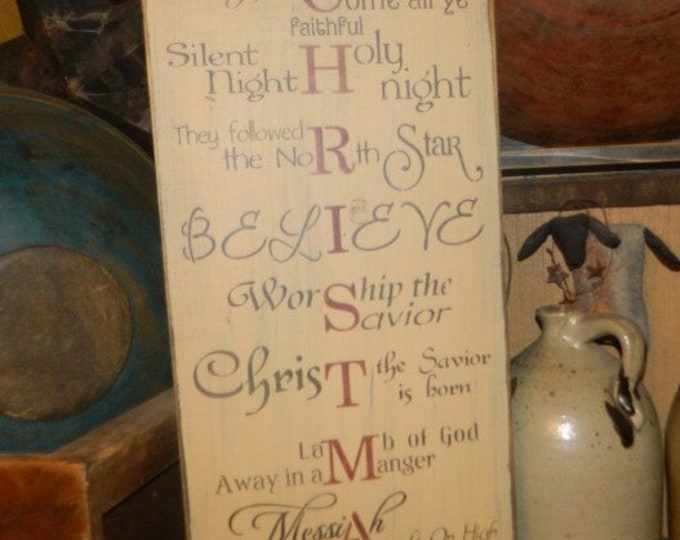 Come all ye
faithful
Silent Holy
Night H night
They followed
the NoRth Star
BELIEVE
WorShip the
Savior
ChrisT the Savior
is born
LaMb of God
Away in a Manger
MessiAh
On High